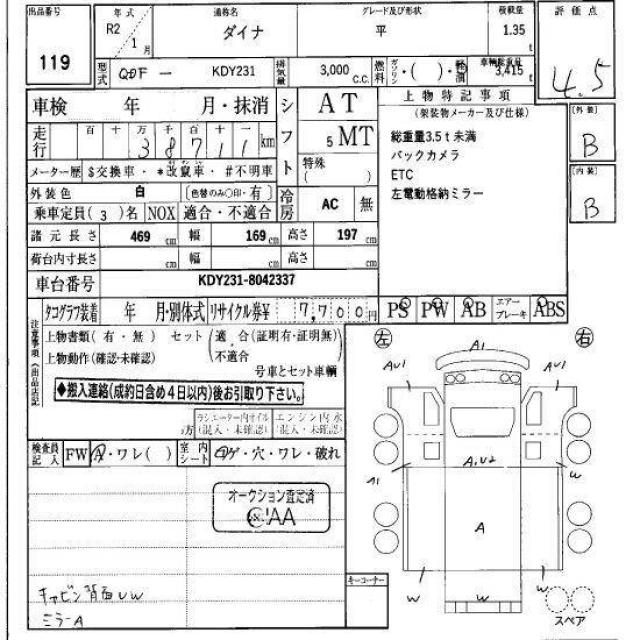 出品番号 119
年式 R2/1月
通称名 ダイナ
グレード及び形状 平
積載量 1.35 t
評価点 4.5
型式 QDF － KDY231
排気量 3,000 C.C.
燃料 ガソリン・( )・軽油
車輌総重量 3,415 t
車検 年 月・抹消
シフト AT 5 MT
特殊 ( )
走行 百 十 万 千 百 十 一 38711 km
メーター歴 $交換車・*改竄車・#不明車
外装色 白 (色替のみ○印・有)
乗車定員( 3 )名 NOX 適合・不適合
冷房 AC 無
諸元長さ 469 cm 幅 169 cm 高さ 197 cm
荷台内寸長さ cm 幅 cm 高さ cm
車台番号 KDY231-8042337
上物特記事項
(架装物メーカー及び仕様)
総重量3.5ｔ未満
バックカメラ
ETC
左電動格納ミラー
[外装] B
[内装] B
タコグラフ装着 年 月・別体式 リサイクル券¥ 7,700円
PS PW AB エアーブレーキ ABS
注意事項(出品店記
上物書類(有・無) セット 適合(証明有・証明無)
上物動作(確認・未確認) 不適合
号車とセット車輌
◆搬入連絡(成約日含め４日以内)後お引取り下さい。
ラジエーター内オイル エンジン内水
(混入・未確認) (混入・未確認)
検査員記入 FW A・ワレ( ) 室内シート コゲ・穴・ワレ・破れ
オークション査定済
CIAA
キャビン背面UW
ミラーA
キーコーナー
左 右
A1
AU1 AU1
A,U2
A1 W
A
W W
スペア